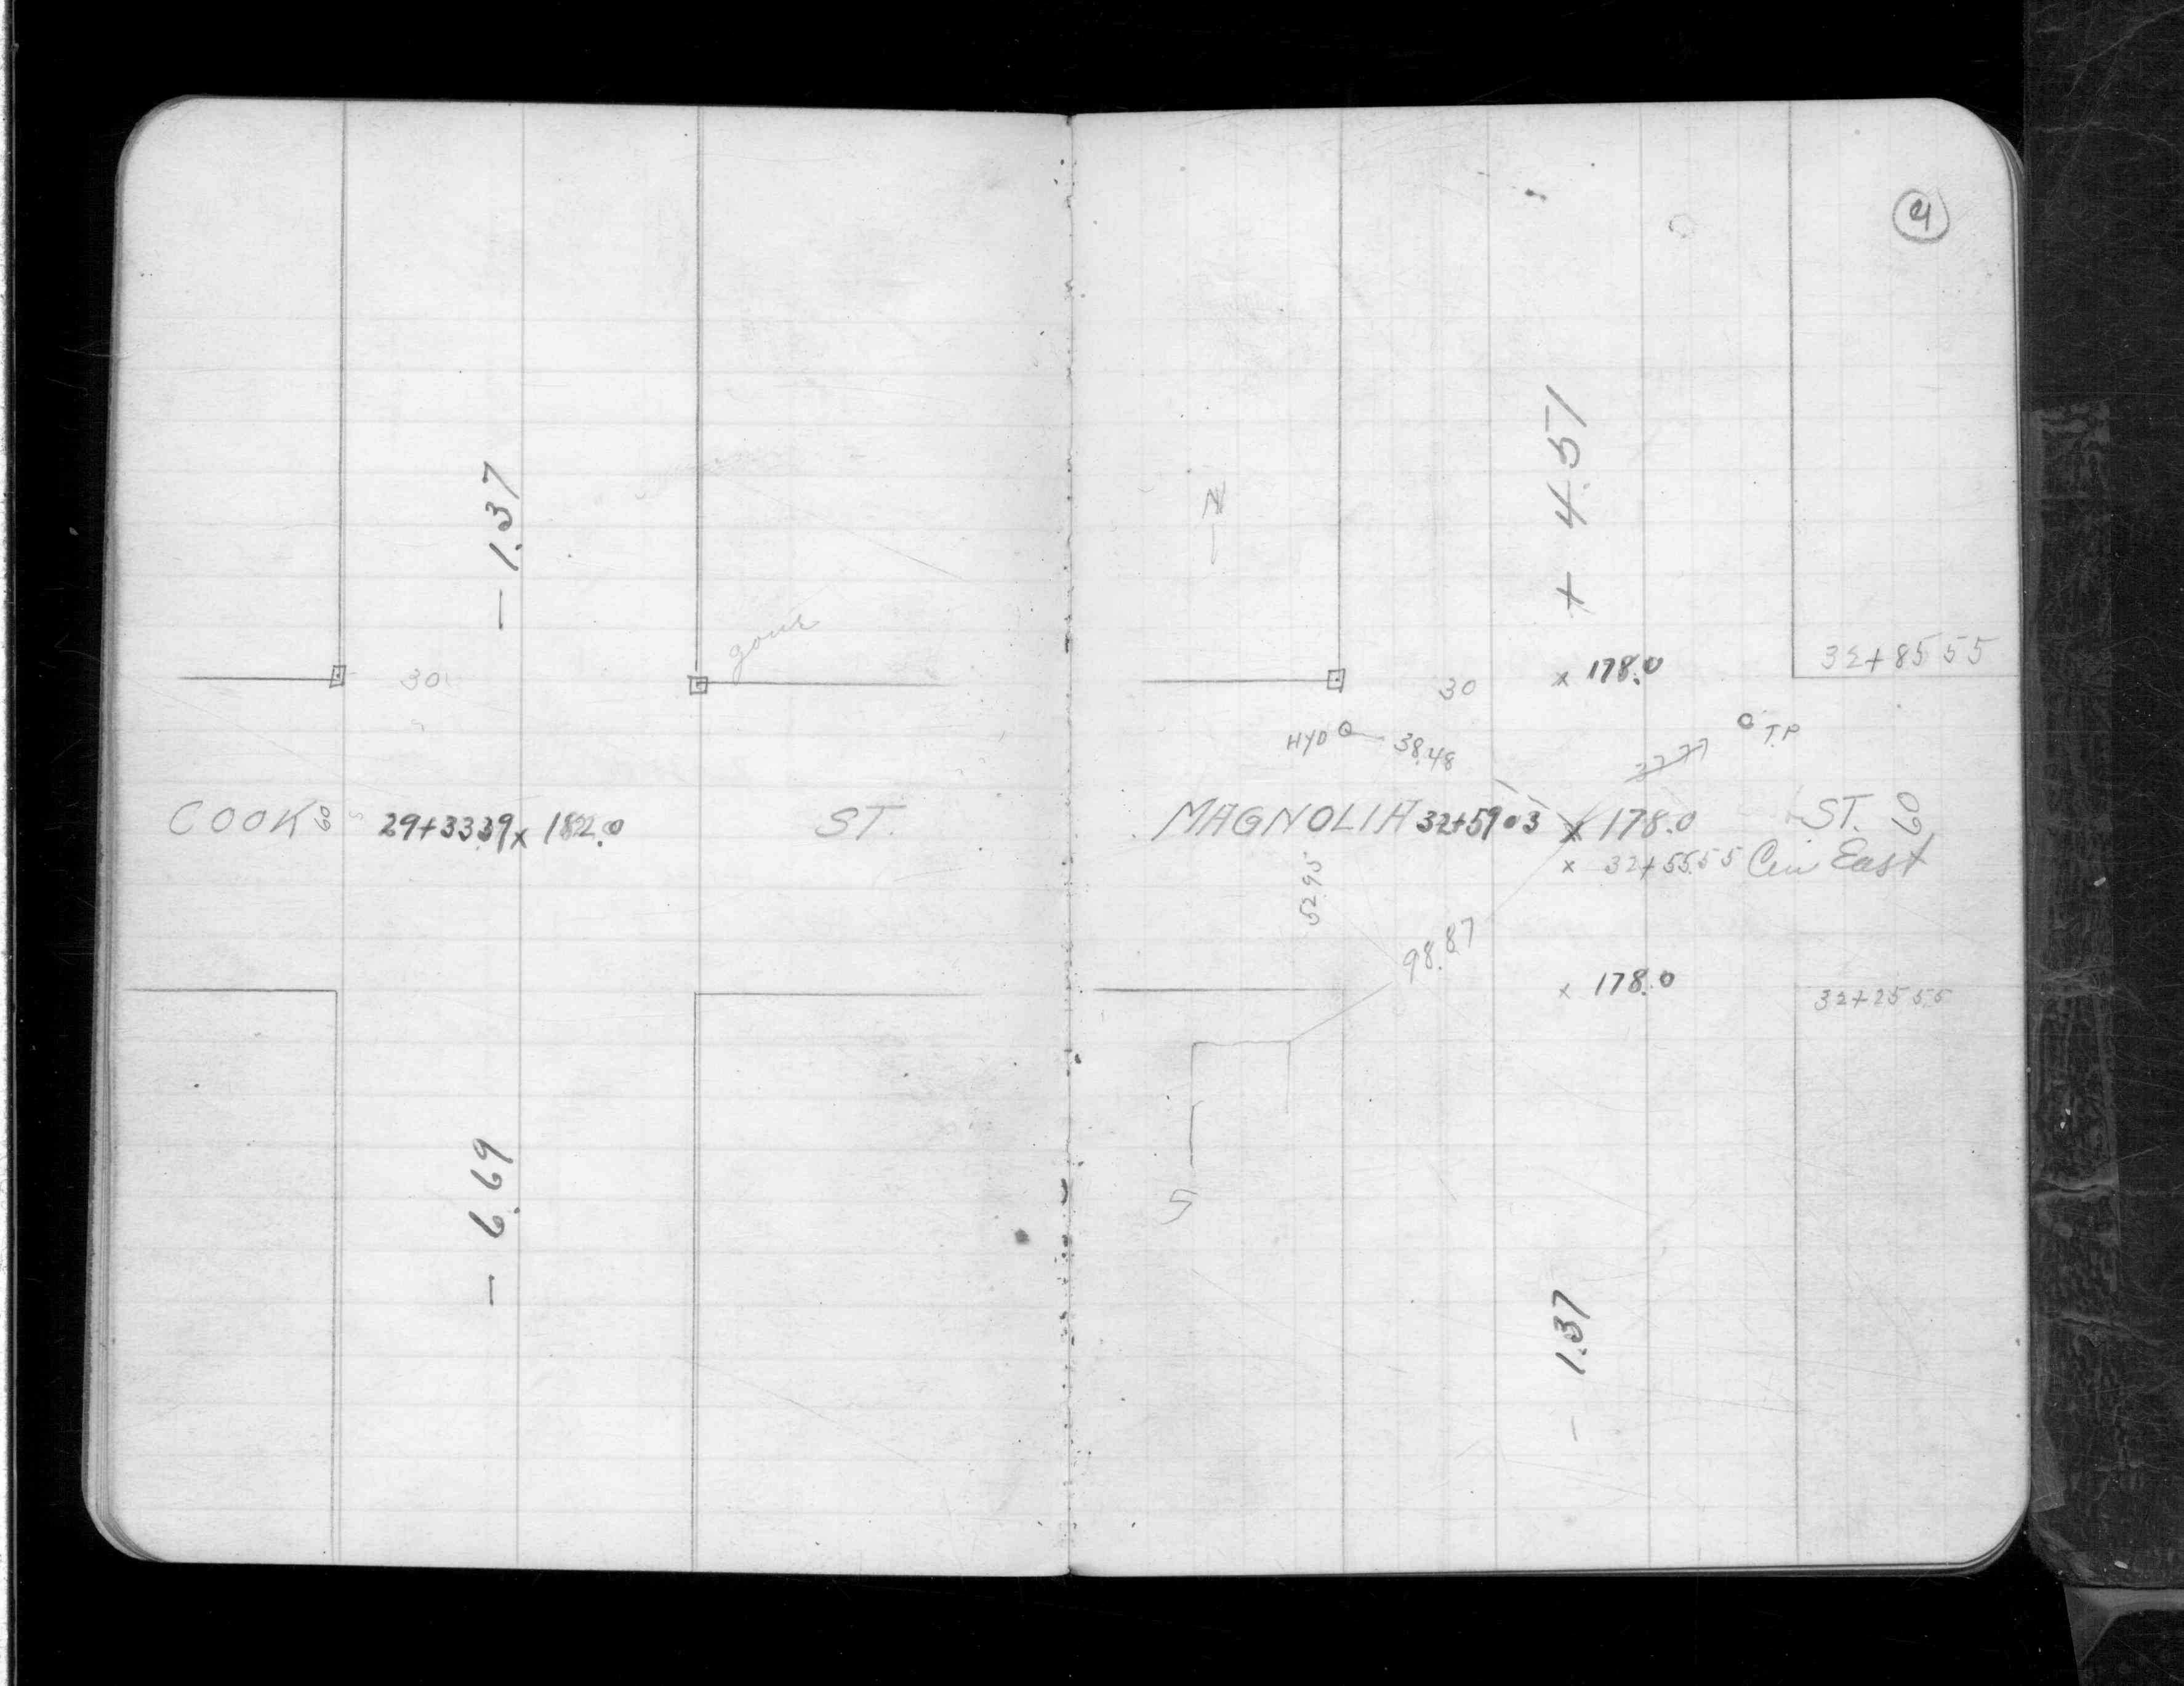 - 1.37
gone
30
COOK 60 29+33.39 x 182.0 ST.
- 6.69
N
+ 4.51
x 178.0
32+85 55
30
HYD 38.48
T.P
MAGNOLIA 32+59.03 x 178.0 ST. 60
x 32+55.55 Cen East
52.95
98.87
x 178.0
32+25 55
- 1.37